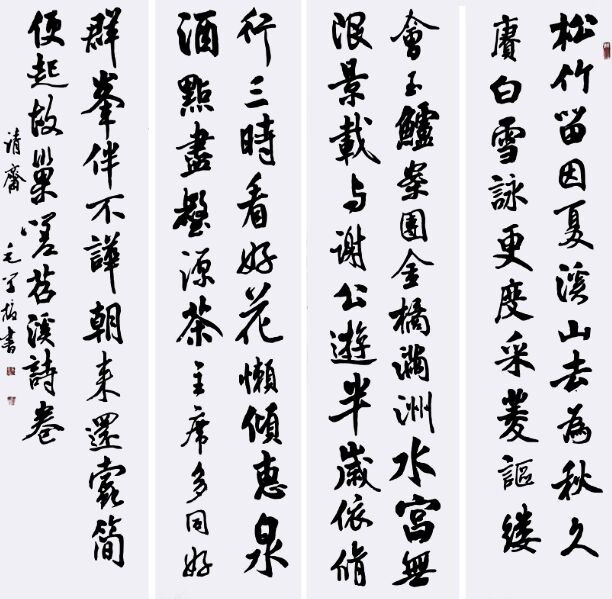 松竹留因夏溪山去為秋久
賡白雪詠更度采菱謳縷
會玉鱸案團金橘滿洲水宮無
限景載與謝公遊半歲依脩
竹三時看好花懶傾惠泉
酒點盡壑源茶主席多同好
群峯伴不譁朝來還蠹簡
便起故巢嗟苕溪詩卷
清齋 毛 書